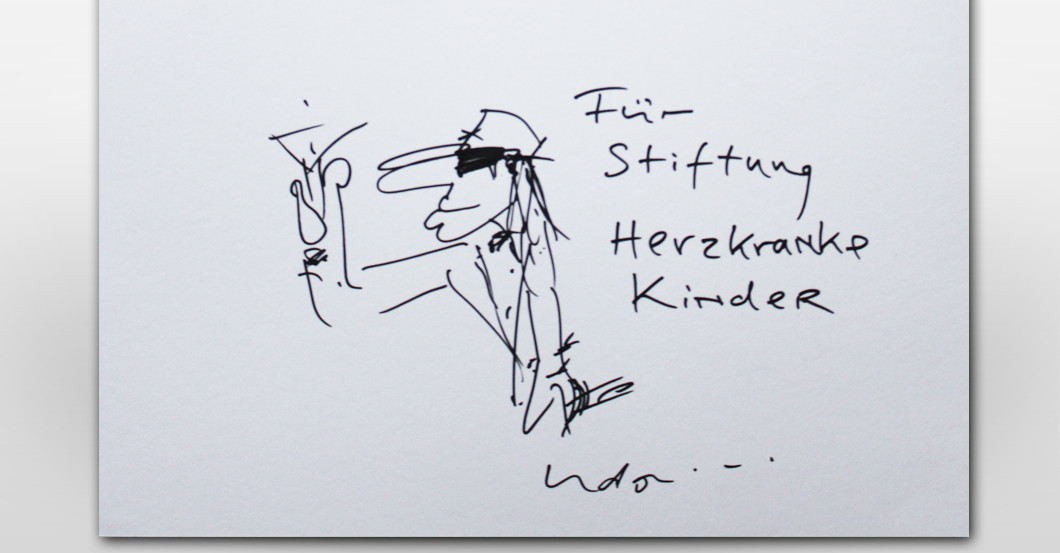 Für
Stiftung
Herzkranke
Kinder
Udo